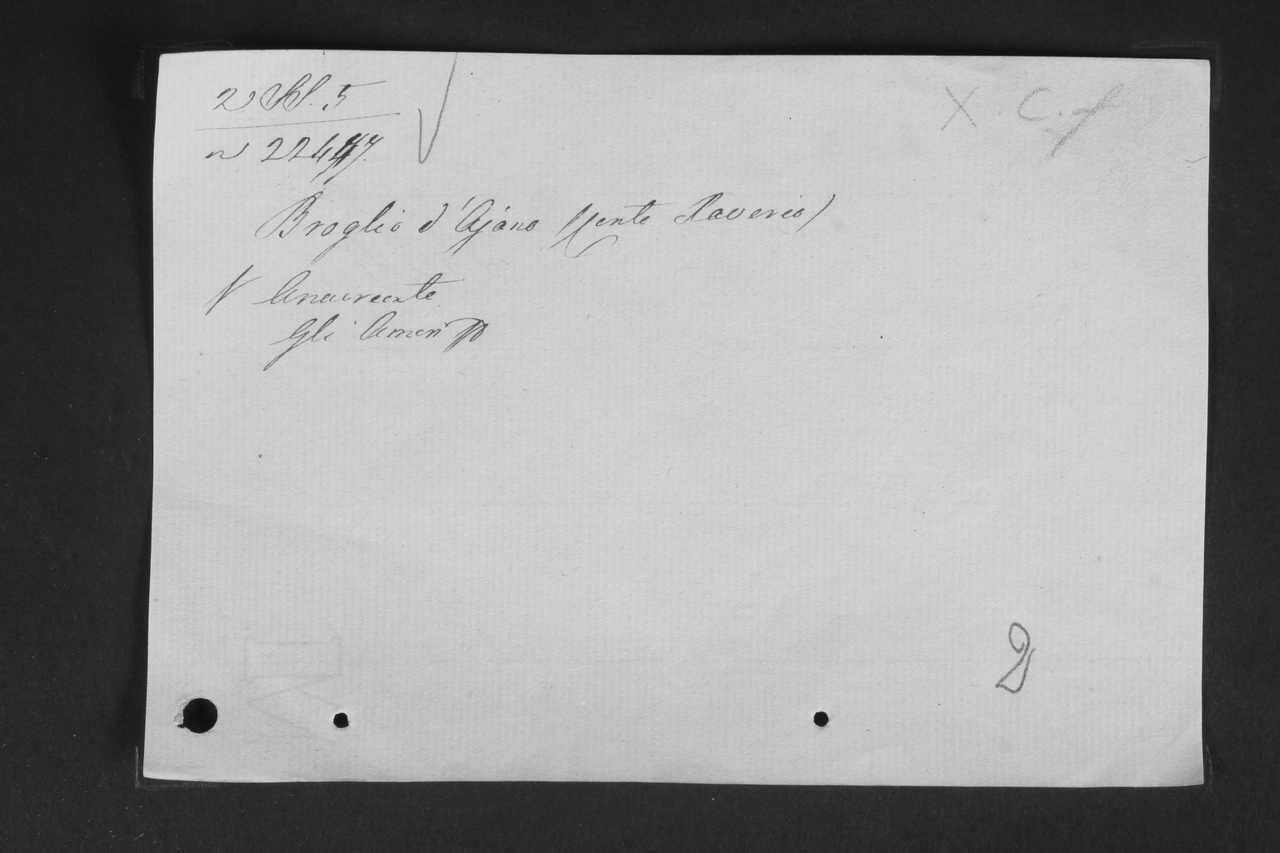 X. C. f
5
n 22447.
Broglio d'Ajano (conte Saverio)
Anacreonte
Gli Amori
2